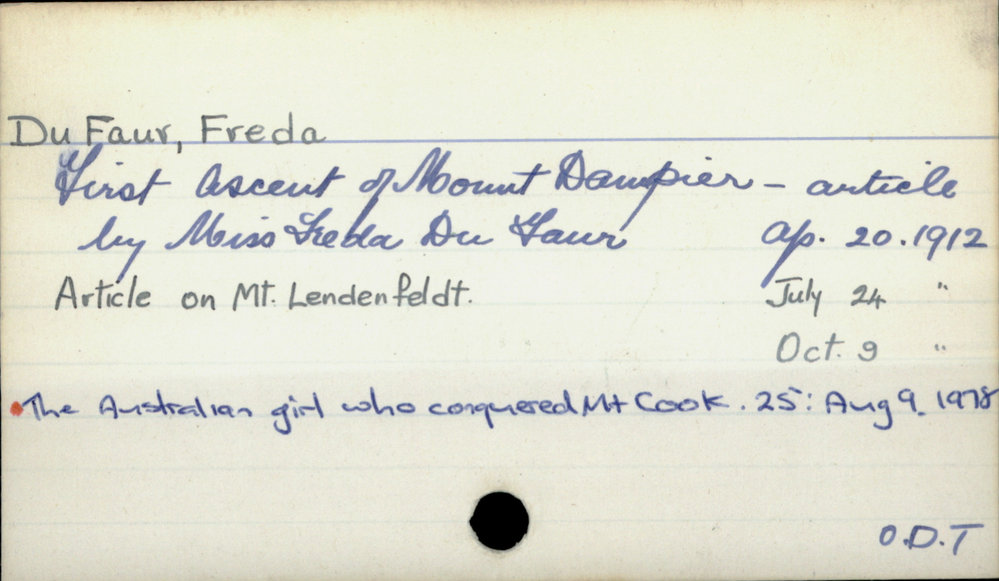 Du Faur, Freda
First Ascent of Mount Dampier - article
by Miss Freda Du Faur Ap. 20. 1912
Article on Mt. Lendenfeldt. July 24 "
Oct. 9 "
The Australian girl who conquered Mt Cook. 25: Aug 9. 1978
O.D.T